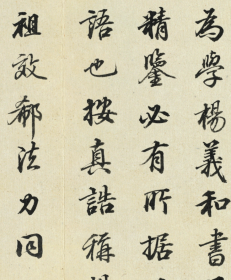 為學楊義和書
精鑒必有所据
語也按真誥稱
祖效郗法力同